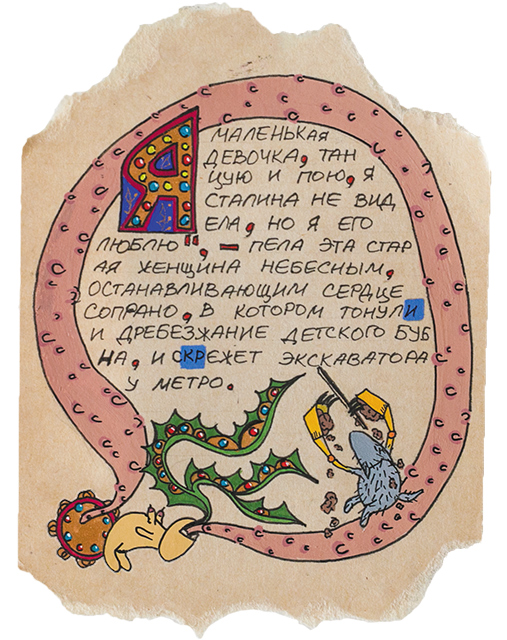 Я МАЛЕНЬКАЯ
ДЕВОЧКА, ТАН
ЦУЮ И ПОЮ, Я
СТАЛИНА НЕ ВИД
ЕЛА, НО Я ЕГО
ЛЮБЛЮ", – ПЕЛА ЭТА СТАР
АЯ ЖЕНЩИНА НЕБЕСНЫМ,
ОСТАНАВЛИВАЮЩИМ СЕРДЦЕ
СОПРАНО, В КОТОРОМ ТОНУЛИ
И ДРЕБЕЗЖАНИЕ ДЕТСКОГО БУБ
НА, И СКРЕЖЕТ ЭКСКАВАТОРА
У МЕТРО.